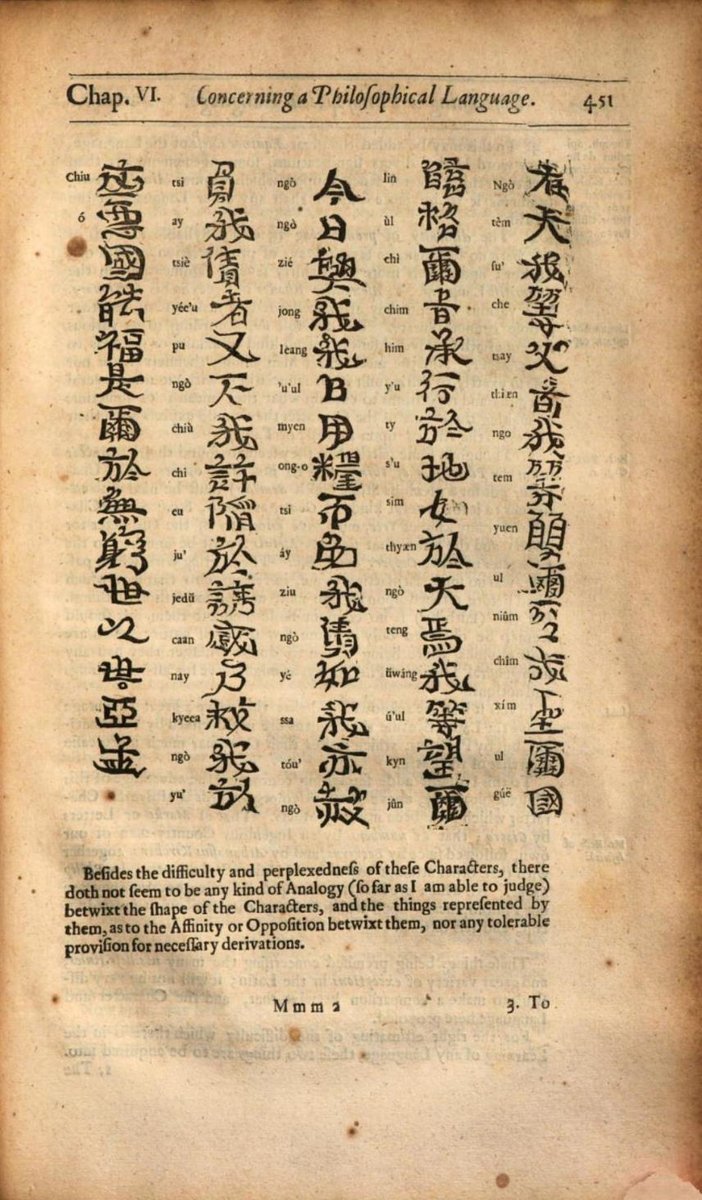 Chap. VI. Concerning a Philoſophical Language. 451
天我等父者我等願爾成聖爾國
Ngò tèm ſu' che ngo tem yuen ul niûm chîm xím ul guë
臨格爾旨承行於地如於天焉我等望爾
lin ùl chì chim him y'u ty s'u sim thyæn ngò teng üwáng ú'ul kyn jûn
今日與我我日用糧而免我債如我亦赦
ngò ngò zié jong leang 'u'ul myen ong-o tsi áy ziu ngò yé ssa tóu' ngò
負我債者又不我許陷於誘感乃救我於
tsi ay tsiè yée'u pu ngò chiù chi eu ju' jedü caan nay kyeea ngò yu'
尊國能福是爾於無窮世以世亞孟
Chiu ó
Beſides the difficulty and perplexedneſs of theſe Characters, there
doth not ſeem to be any kind of Analogy (ſo far as I am able to judge)
betwixt the ſhape of the Characters, and the things repreſented by
them, as to the Affinity or Oppoſition betwixt them, nor any tolerable
proviſion for neceſſary derivations.
Mmm 2 3. To